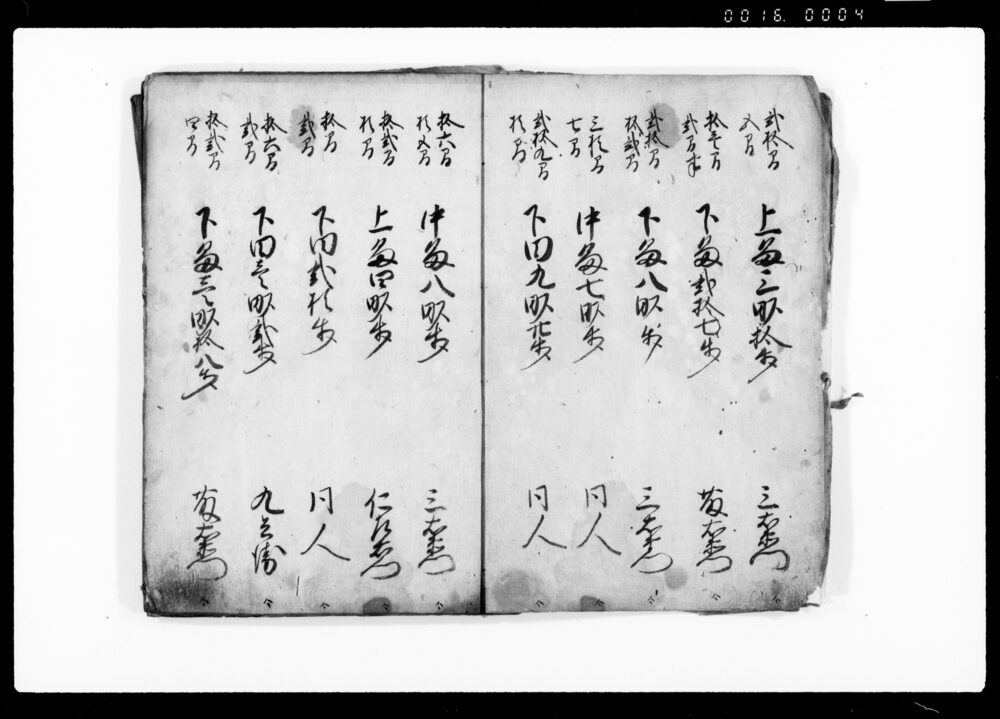 0016. 0004
弐拾間
五間
上畠三畝拾歩
三右衛門
拾壱間
弐間半
下畠弐拾七歩
右衛門
弐拾間
拾弐間
下畠八畝歩
三右衛門
三拾間
七間
中畠七畝歩
同人
弐拾九間
拾間
下田九畝廿歩
同人
拾六間
拾五間
中畠八畝歩
三右衛門
拾弐間
拾間
上畠四畝歩
仁衛門
拾間
弐間
下田弐拾歩
同人
拾六間
弐間
下田壱畝弐歩
九兵衛
拾弐間
四間
下畠壱畝拾八歩
右衛門